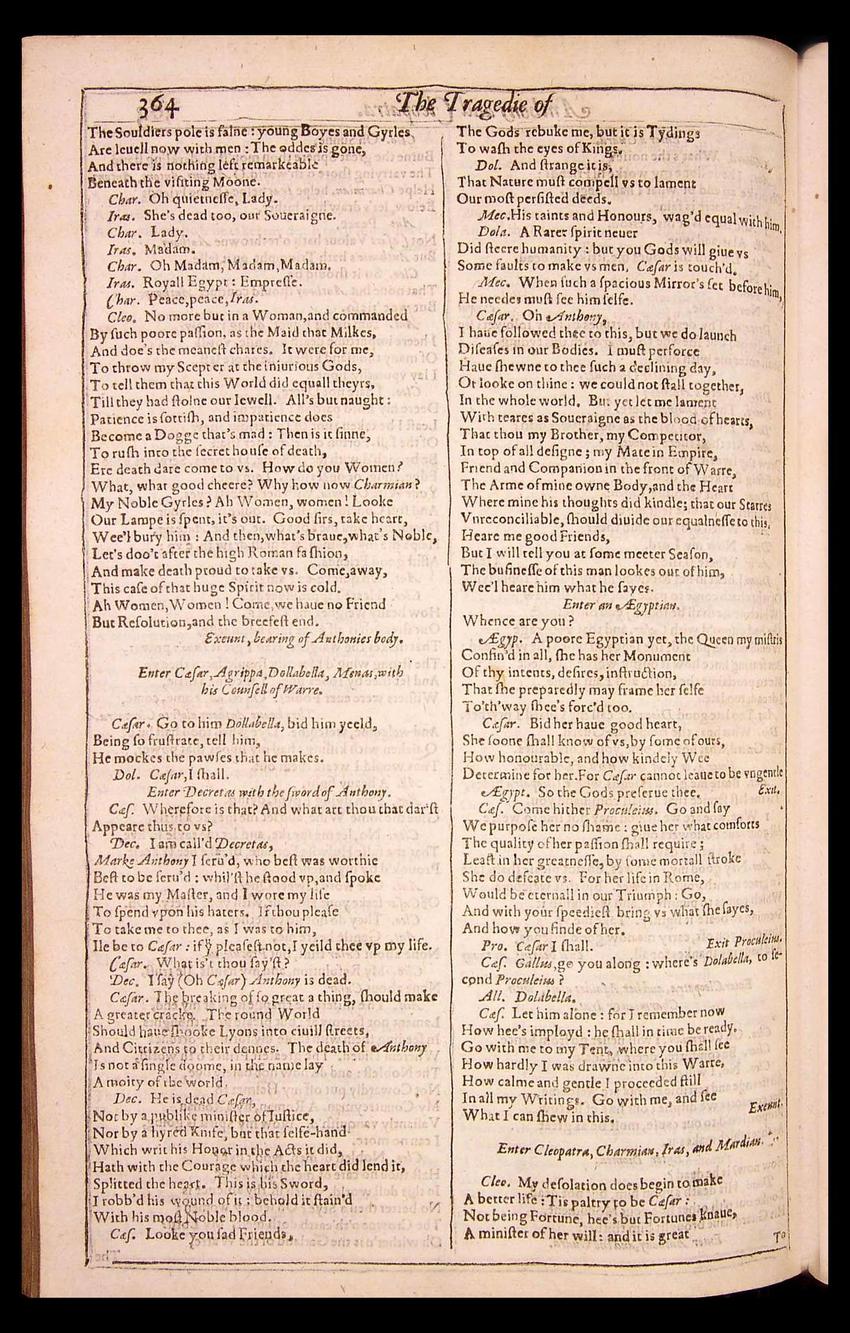 364
The Tragedie of
The Souldiers pole is falne : young Boyes and Gyrles
Are leuell now with men : The oddes is gone,
And there is nothing left remarkeable
Beneath the visiting Moone.
Char. Oh quietnesse, Lady.
Iras. She's dead too, our Soueraigne.
Char. Lady.
Iras. Madam.
Char. Oh Madam, Madam, Madam.
Iras. Royall Egypt : Empresse.
Char. Peace, peace, Iras.
Cleo. No more but in a Woman, and commanded
By such poore passion, as the Maid that Milkes,
And doe's the meanest chares. It were for me,
To throw my Scepter at the iniurious Gods,
To tell them that this World did equall theyrs,
Till they had stolne our Iewell. All's but naught :
Patience is sottish, and impatience does
Become a Dogge that's mad : Then is it sinne,
To rush into the secret house of death,
Ere death dare come to vs. How do you Women?
What, what good cheere? Why how now Charmian?
My Noble Gyrles? Ah Women, women! Looke
Our Lampe is spent, it's out. Good sirs, take heart,
Wee'l bury him : And then, what's braue, what's Noble,
Let's doo't after the high Roman fashion,
And make death proud to take vs. Come, away,
This case of that huge Spirit now is cold.
Ah Women, Women! Come, we haue no Friend
But Resolution, and the breefest end.
Exeunt, bearing of Anthonies body.
Enter Cæsar, Agrippa, Dollabella, Menas, with
his Counsell of Warre.
Cæsar. Go to him Dollabella, bid him yeeld,
Being so frustrate, tell him,
He mockes the pawses that he makes.
Dol. Cæsar, I shall.
Enter Decretas with the sword of Anthony.
Cæs. Wherefore is that? And what art thou that dar'st
Appeare thus to vs?
Dec. I am call'd Decretas,
Marke Anthony I seru'd, who best was worthie
Best to be seru'd : whil'st he stood vp, and spoke
He was my Master, and I wore my life
To spend vpon his haters. If thou please
To take me to thee, as I was to him,
Ile be to Cæsar : if yͧ pleasest not, I yeild thee vp my life.
Cæsar. What is't thou say'st?
Dec. I say (Oh Cæsar) Anthony is dead.
Cæsar. The breaking of so great a thing, should make
A greater cracke. The round World
Should haue shooke Lyons into ciuill streets,
And Cittizens to their dennes. The death of Anthony
Is not a single doome, in the name lay
A moity of the world.
Dec. He is dead Cæsar,
Not by a publike minister of Iustice,
Nor by a hyred Knife, but that selfe-hand
Which writ his Honor in the Acts it did,
Hath with the Courage which the heart did lend it,
Splitted the heart. This is his Sword,
I robb'd his wound of it : behold it stain'd
With his most Noble blood.
Cæs. Looke you sad Friends,
The Gods rebuke me, but it is Tydings
To wash the eyes of Kings.
Dol. And strange it is,
That Nature must compell vs to lament
Our most persisted deeds.
Mec. His taints and Honours, wag'd equal with him.
Dola. A Rarer spirit neuer
Did steere humanity : but you Gods will giue vs
Some faults to make vs men. Cæsar is touch'd.
Mec. When such a spacious Mirror's set before him,
He needes must see him selfe.
Cæsar. Oh Anthony,
I haue followed thee to this, but we do launch
Diseases in our Bodies. I must perforce
Haue shewne to thee such a declining day,
Or looke on thine : we could not stall together,
In the whole world. But yet let me lament
With teares as Soueraigne as the blood of hearts,
That thou my Brother, my Competitor,
In top of all designe ; my Mate in Empire,
Friend and Companion in the front of Warre,
The Arme of mine owne Body, and the Heart
Where mine his thoughts did kindle; that our Starres
Vnreconciliable, should diuide our equalnesse to this.
Heare me good Friends,
But I will tell you at some meeter Season,
The businesse of this man lookes out of him,
Wee'l heare him what he sayes.
Enter an Ægyptian.
Whence are you?
Ægyp. A poore Egyptian yet, the Queen my mistris
Confin'd in all, she has her Monument
Of thy intents, desires, instruction,
That she preparedly may frame her selfe
To'th'way shee's forc'd too.
Cæsar. Bid her haue good heart,
She soone shall know of vs, by some of ours,
How honourable, and how kindely Wee
Determine for her. For Cæsar cannot leaue to be vngentle
Ægypt. So the Gods preserue thee. Exit.
Cæs. Come hither Proculeius. Go and say
We purpose her no shame : giue her what comforts
The quality of her passion shall require ;
Least in her greatnesse, by some mortall stroke
She do defeate vs. For her life in Rome,
Would be eternall in our Triumph : Go,
And with your speediest bring vs what she sayes,
And how you finde of her.
Pro. Cæsar I shall. Exit Proculeius.
Cæs. Gallus, ge you along : where's Dolabella, to se-
cond Proculeius?
All. Dolabella.
Cæs. Let him alone : for I remember now
How hee's imployd : he shall in time be ready.
Go with me to my Tent, where you shall see
How hardly I was drawne into this Warre,
How calme and gentle I proceeded still
In all my Writings. Go with me, and see
What I can shew in this. Exeunt.
Enter Cleopatra, Charmian, Iras, and Mardian.
Cleo. My desolation does begin to make
A better life : Tis paltry to be Cæsar :
Not being Fortune, hee's but Fortunes knaue,
A minister of her will : and it is great
To